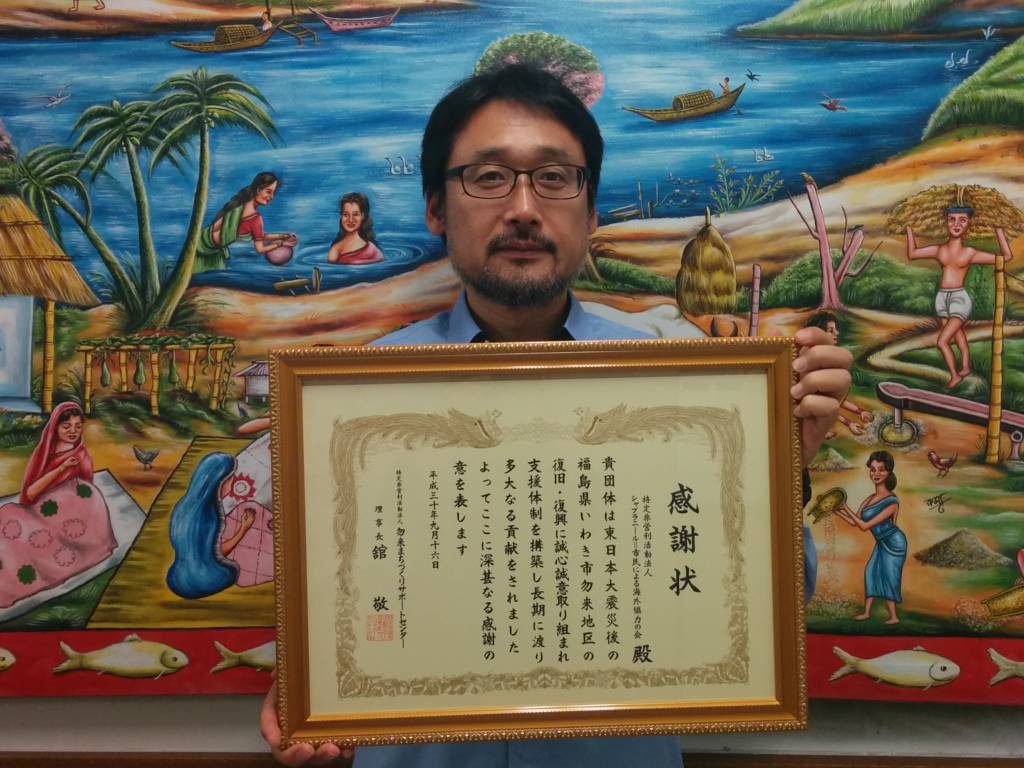 感謝状
特定非営利活動法人
シャプラニール=市民による海外協力の会 殿
貴団体は東日本大震災後の
福島県いわき市勿来地区の
復旧・復興に誠心誠意取り組まれ
支援体制を構築し長期に渡り
多大なる貢献をされました
よってここに深甚なる感謝の
意を表します
平成三十年九月十六日
特定非営利活動法人 勿来まちづくりサポートセンター
理事長 舘 敬